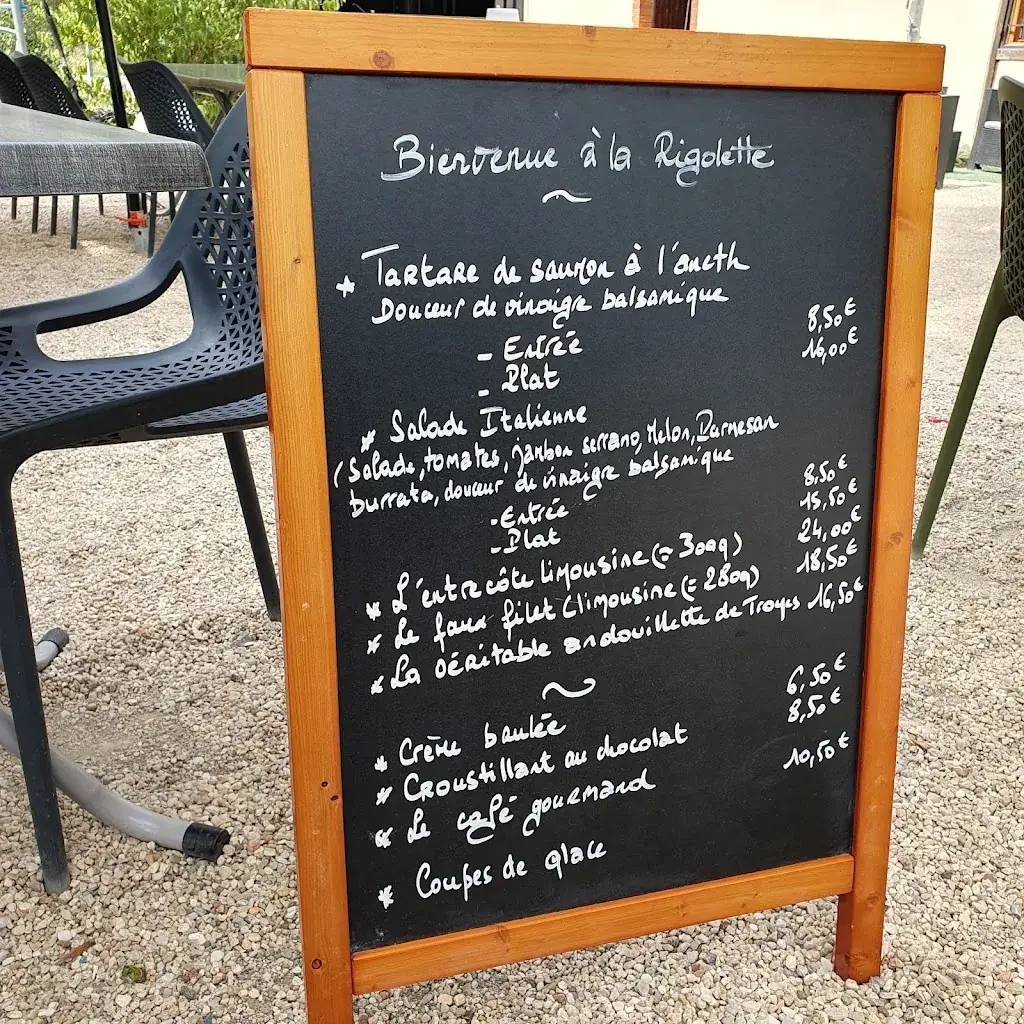 Bienvenue à la Rigolette
* Tartare de saumon à l'aneth
Douceur de vinaigre balsamique
- Entrée 8,50€
- Plat 16,00€
* Salade Italienne
(Salade, tomates, jambon serrano, Melon, Parmesan
burrata, douceur de vinaigre balsamique
- Entrée 8,50€
- Plat 15,50€
* L'entrecôte limousine (= 300g) 24,00€
* Le faux filet (limousine (= 280g) 18,50€
* La véritable andouillette de Troyes 16,50€
* Crème brulée 6,50€
* Croustillant au chocolat 8,50€
* Le café gourmand 10,50€
* Coupes de glace